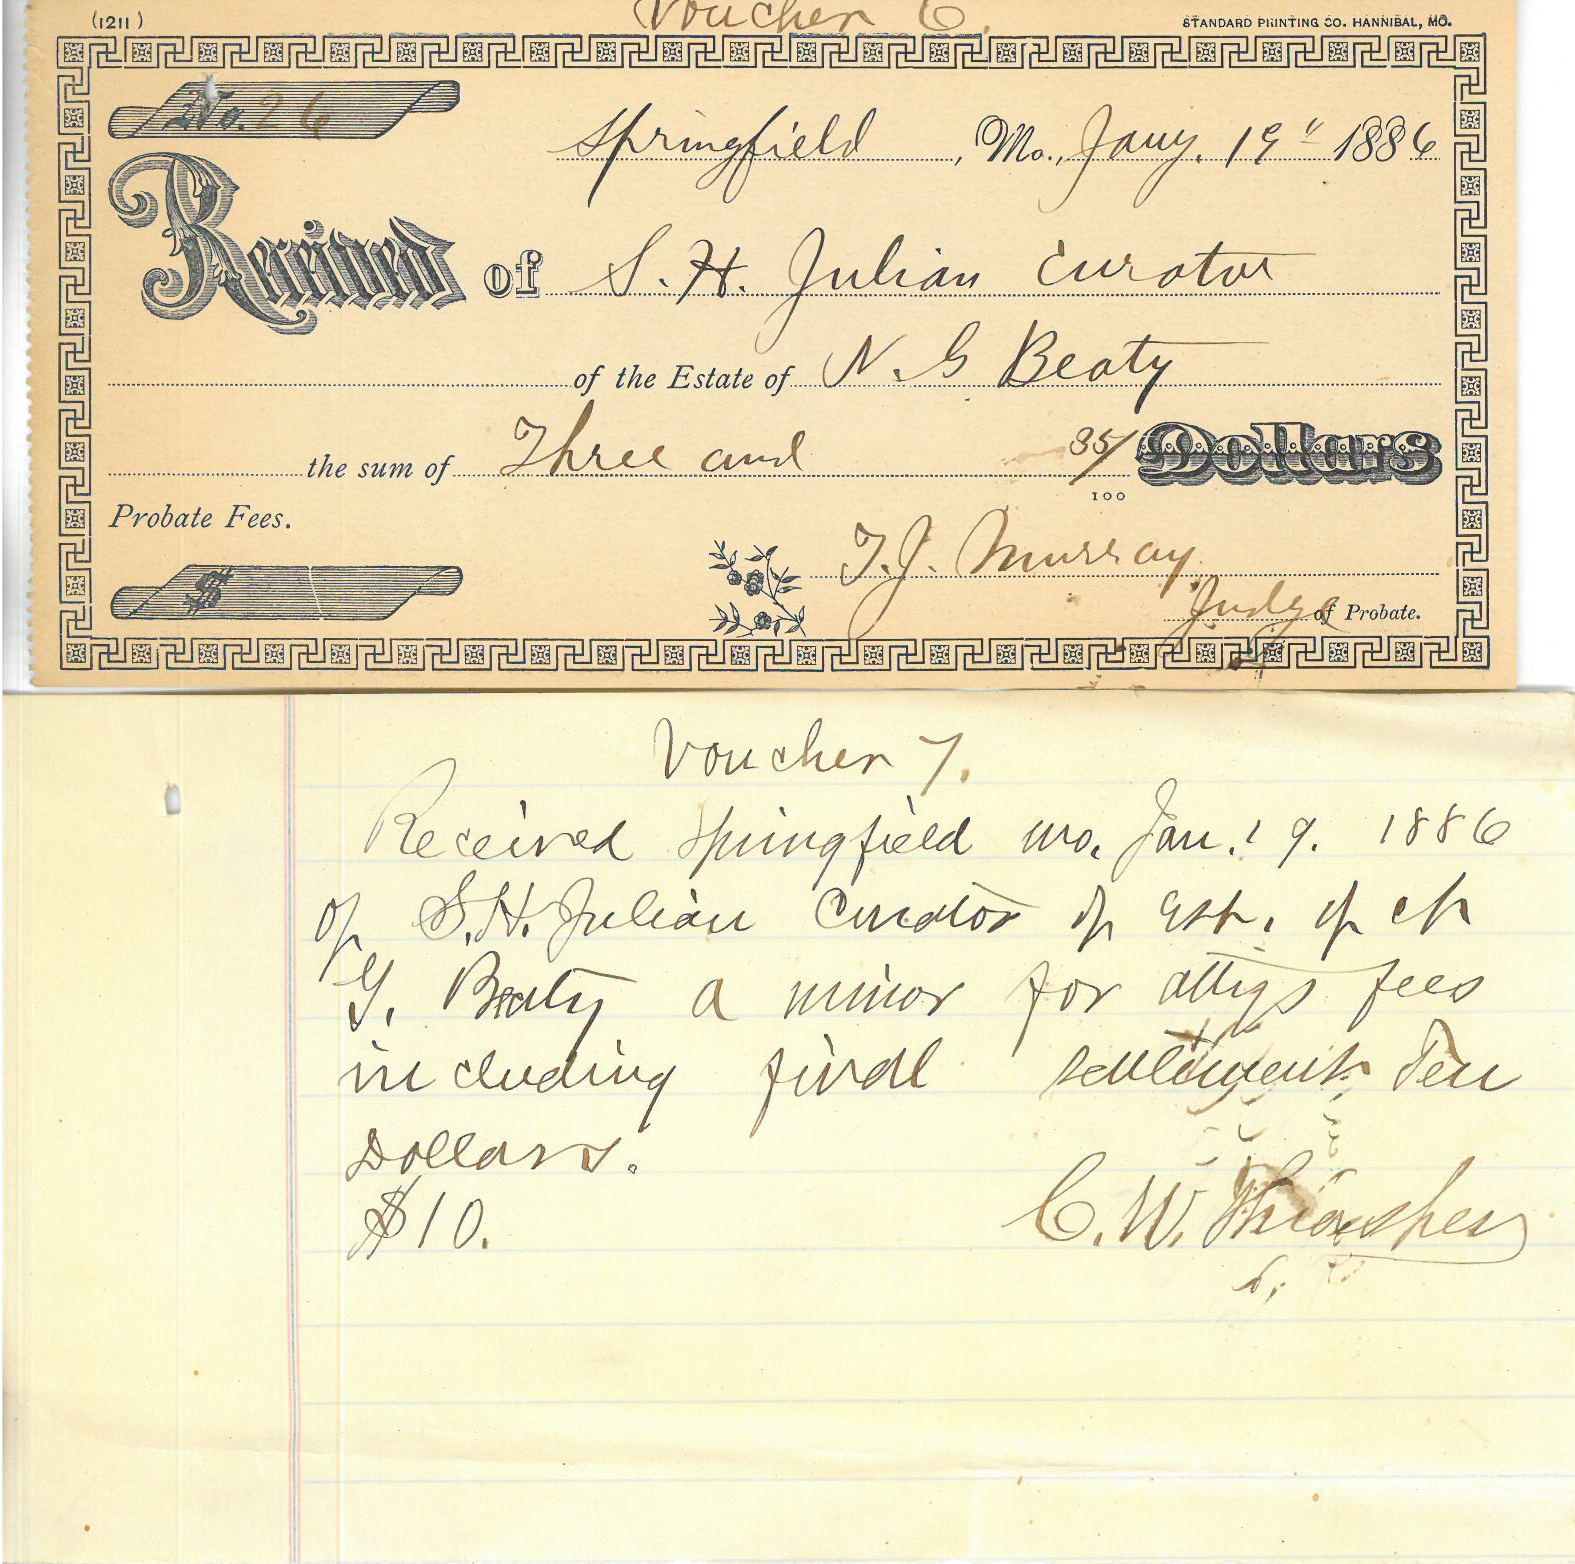 Voucher 6.
(1211)
STANDARD PRINTING CO. HANNIBAL, MO.
No. 26
Springfield, Mo., Jany. 19" 1886
Received of S. H. Julian Curator
of the Estate of N. G Beaty
the sum of Three and 85/100 Dollars
Probate Fees.
$
T. J. Murray
Judge of Probate.
Voucher 7.
Received Springfield Mo. Jan. 19. 1886
of S. H. Julian Curator of Est. of N
G. Beaty a minor for attys fees
including final settlement Ten
Dollars.
$10.
C. W. Thrasher